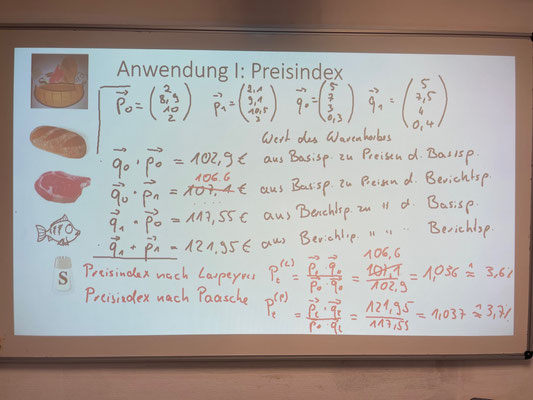 Anwendung I: Preisindex
p⃗₀ = (2 8,9 10 2) p⃗₁ = (2,1 9,1 10,5 3) q⃗₀ = (5 7 3 0,3) q⃗₁ = (5 7,5 4 0,4)
Wert des Warenkorbes
q⃗₀ · p⃗₀ = 102,9 € aus Basisp. zu Preisen d. Basisp.
106.6
q⃗₀ · p⃗₁ = 107,1 € aus Basisp. zu Preisen d. Berichtsp.
q⃗₁ · p⃗₀ = 117,55 € aus Berichtsp. zu " d. Basisp.
q⃗₁ · p⃗₁ = 121,95 € aus Berichtsp. " " " Berichtsp.
Preisindex nach Laspeyres P_t^(L) = p⃗_t · q⃗₀ / p⃗₀ · q⃗₀ = 106,6 107,1 / 102,9 = 1,036 ≙ 3,6%
Preisindex nach Paasche P_t^(P) = p⃗_t · q⃗_t / p⃗₀ · q⃗_t = 121,95 / 117,55 = 1,037 ≙ 3,7%
S